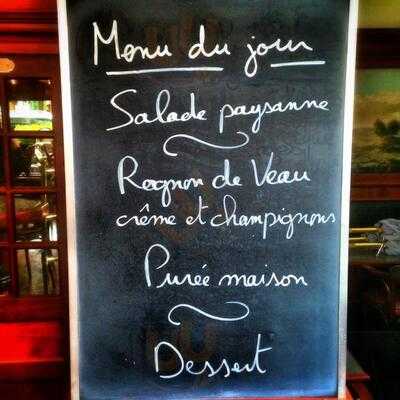 Menu du jour
Salade paysanne
Rognon de Veau
crème et champignons
Purée maison
Dessert